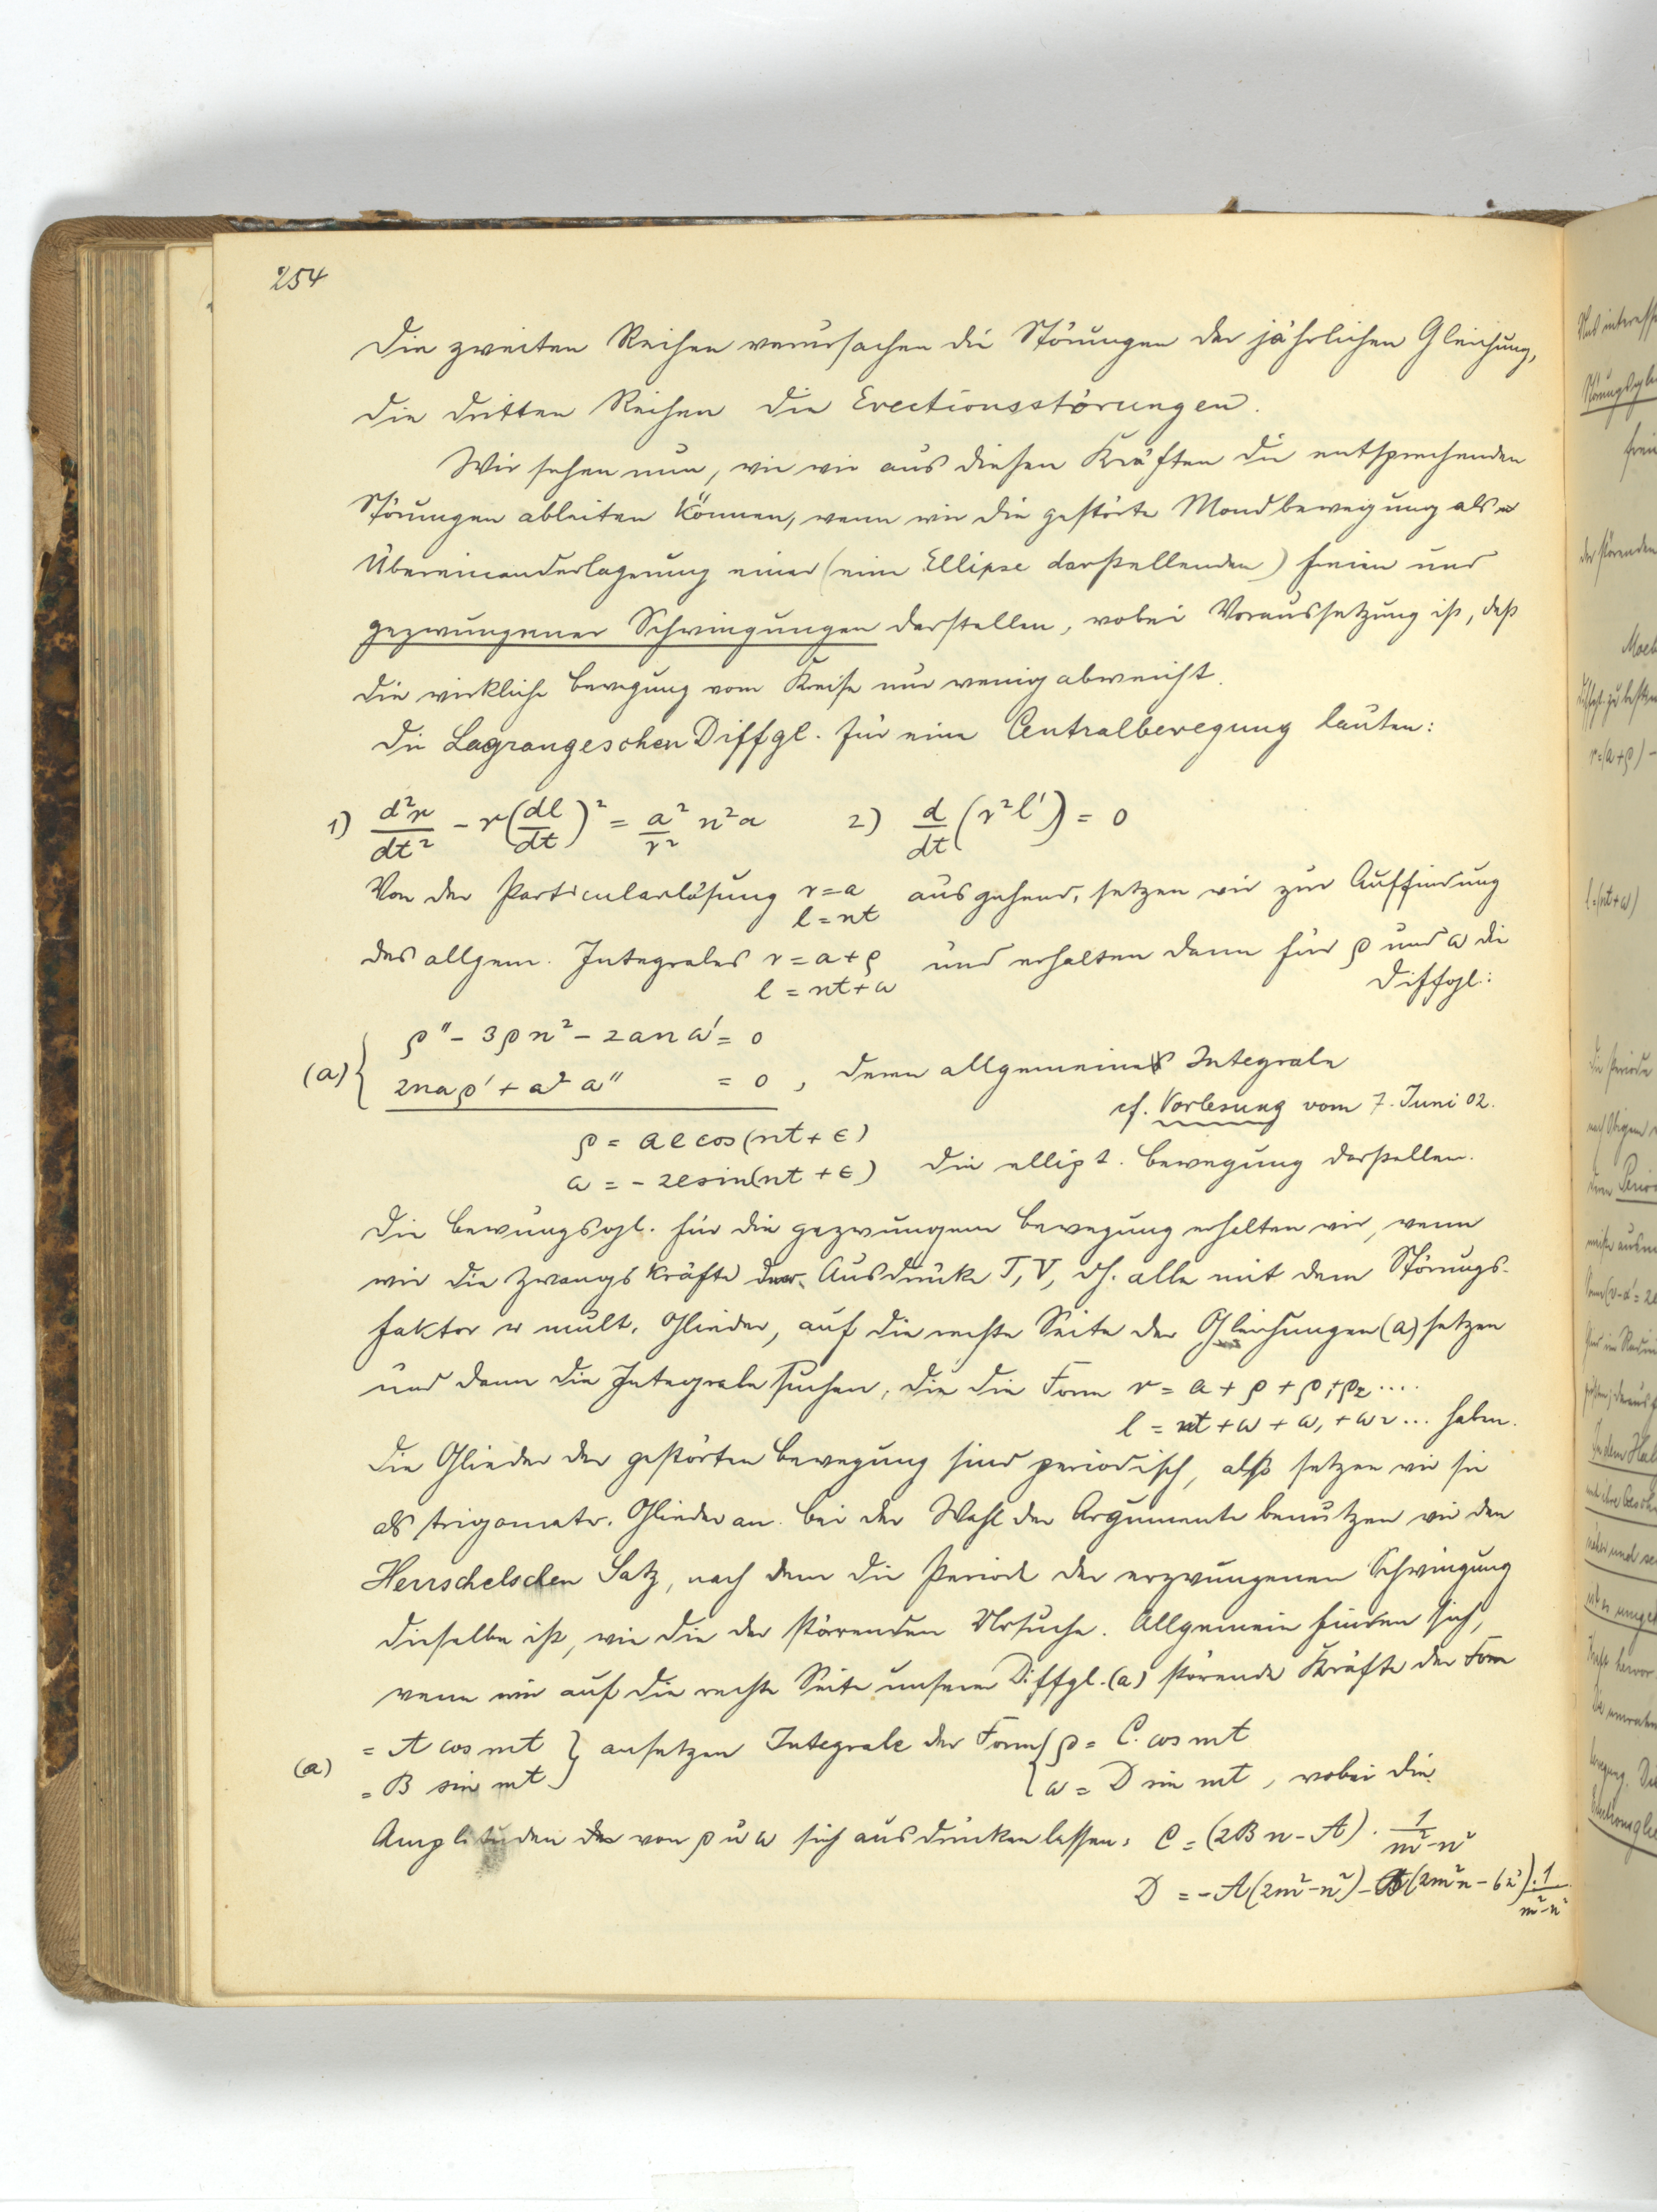 254
Die zweiten Reihen verursachen die Störungen der jährlichen Gleichung,
die dritten Reihen die Evectionsstörungen.
Wir sehen nun, wie wir aus diesen Kräften die entsprechenden
Störungen ableiten können, wenn wir die gestörte Mondbewegung als
Übereinanderlagerung einer (eine Ellipse darstellenden) freien und
gezwungener Schwingungen darstellen, wobei Voraussetzung ist, daß
die wirkliche Bewegung vom Kreise nur wenig abweicht.
Die Lagrangeschen Diffgl. für eine Centralbewegung lauten:
1) d²r/dt² - r(dl/dt)² = a²/r² n²a 2) d/dt (r²l') = 0
Von der Particularlösung r = a ausgehend, setzen wir zur Auffindung
l = nt
des allgem. Integrales r = a + ρ und erhalten dann für ρ und ω die
l = nt + ω Diffgl.:
(a) { ρ'' - 3ρn² - 2anω' = 0
2naρ' + a²ω'' = 0, deren allgemeines Integrale
cf. Vorlesung vom 7. Juni 02.
ρ = ae cos(nt + ε)
ω = -2e sin(nt + ε) die ellipt. Bewegung darstellen.
Die Bewungsgl. für die gezwungene Bewegung erhalten wir, wenn
wir die Zwangskräfte der Ausdrücke T, V, dh. alle mit dem Störungs-
faktor ϰ mult. Glieder, auf die rechte Seite der Gleichungen (a) setzen
und dann die Integrale suchen, die die Form r = a + ρ + ρ₁ + ρ₂ ....
l = nt + ω + ω₁ + ω₂ ... haben.
Die Glieder der gestörten Bewegung sind periodisch, also setzen wir sie
als trigometr. Glieder an. Bei der Wahl der Argumente benutzen wir den
Herrschelschen Satz, nach dem die Periode der erzwungenen Schwingung
dieselbe ist, wie die der störenden Ursache. Allgemein finden sich,
wenn wir auf die rechte Seite unserer Diffgl. (a) störende Kräfte der Form
(a) = A cos mt } ansetzen Integrale der Form { ρ = C cos mt
= B sin mt } { ω = D sin mt, wobei die
Amplituden der von ρ u ω sich ausdrücken lassen: C = (2Bn - A) · 1/m²-n²
D = -A(2m²-n²) - (2m²n - 6n³) · 1/m²-n²